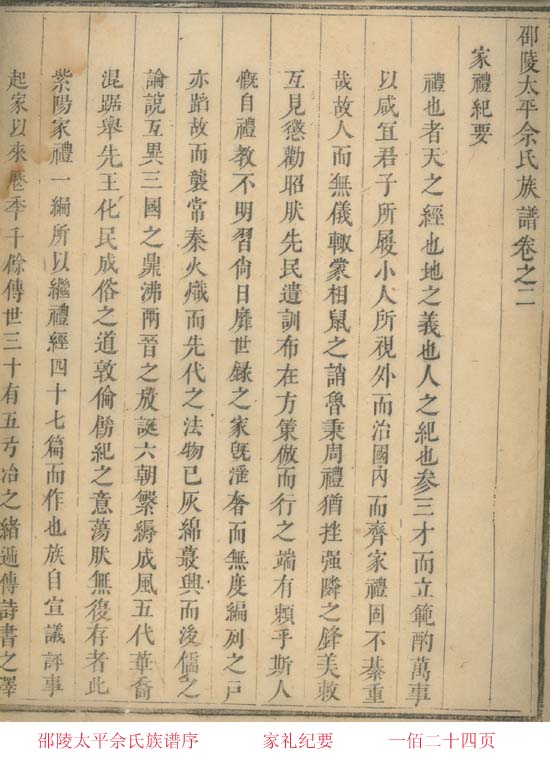 邵陵太平佘氏族譜卷之二
家禮紀要
禮也者天之經也地之義也人之紀也參三才而立範酌萬事
以咸宜君子所履小人所視外而治國內而齊家禮固不綦重
哉故人而無儀輙蒙相鼠之誚魯秉周禮猶挫强隣之鋒美敕
互見懲勸昭肰先民遺訓布在方策倣而行之端有頼乎斯人
慨自禮教不明習尙日靡世録之家旣滛奢而無度編列之戸
亦蹈故而襲常秦火熾而先代之法物已灰綿蕞興而後儒之
論說互異三國之鼎沸兩晉之放誕六朝繁縟成風五代華裔
混踞舉先王化民成俗之道敦倫飭紀之意蕩肰無復存者此
紫陽家禮一編所以繼禮經四十七篇而作也族自宣議評事
起家以來歷年千餘傳世三十有五弓冶之緒遞傳詩書之澤
邵陵太平佘氏族谱序 家礼纪要 一佰二十四页